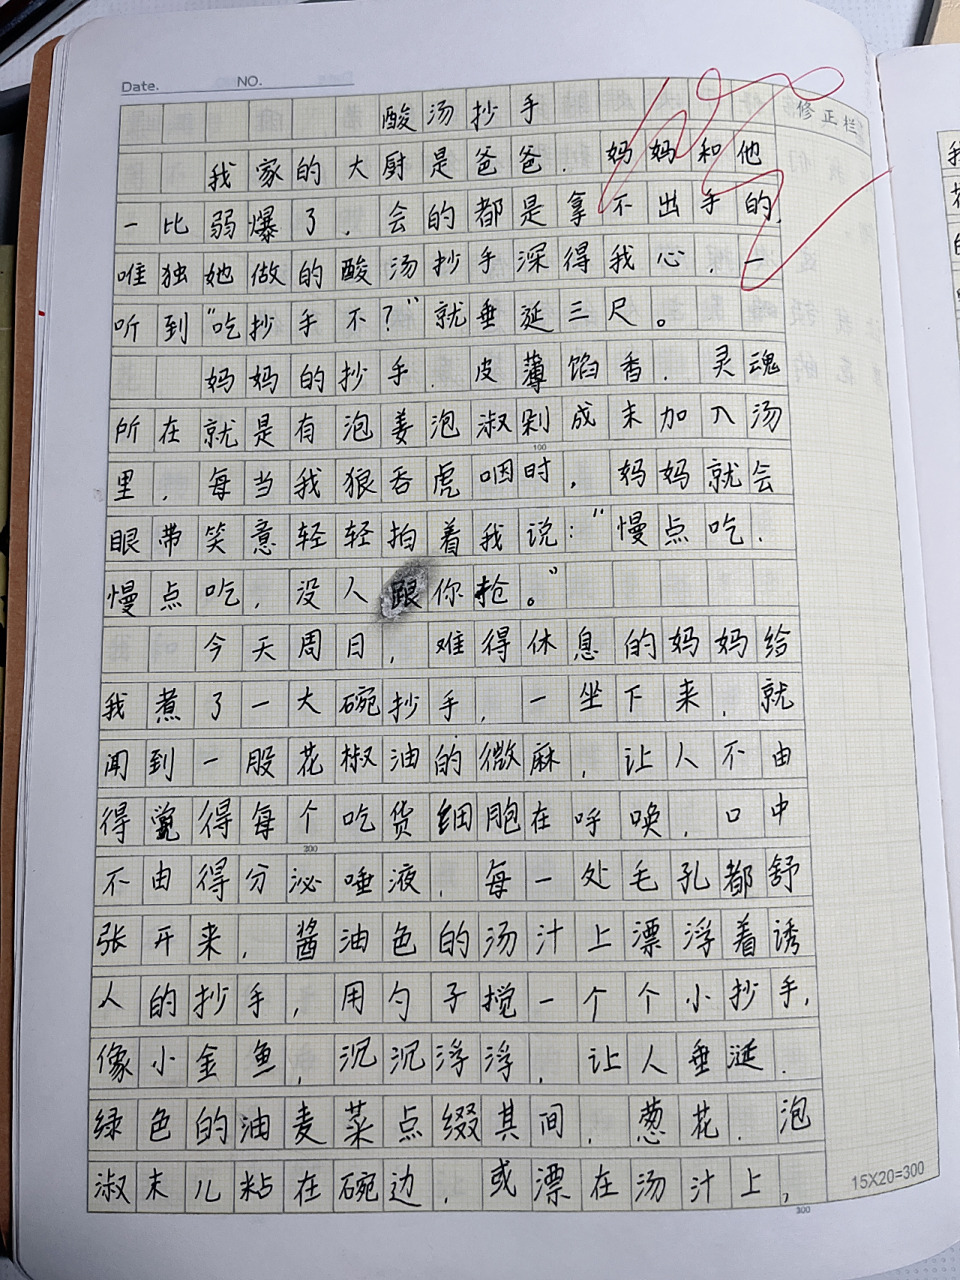 Date. NO.
酸汤抄手
修正栏
我家的大厨是爸爸，妈妈和他
一比弱爆了，会的都是拿不出手的，
唯独她做的酸汤抄手深得我心，一
听到“吃抄手不？”就垂延三尺。
妈妈的抄手，皮薄馅香，灵魂
所在就是有泡姜泡淑剁成末加入汤
里，每当我狼吞虎咽时，妈妈就会
眼带笑意轻轻拍着我说：“慢点吃，
慢点吃，没人跟你抢。”
今天周日，难得休息的妈妈给
我煮了一大碗抄手，一坐下来，就
闻到一股花椒油的微麻，让人不由
得觉得每个吃货细胞在呼唤，口中
不由得分泌唾液，每一处毛孔都舒
张开来，酱油色的汤汁上漂浮着诱
人的抄手，用勺子搅一个个小抄手，
像小金鱼，沉沉浮浮，让人垂涎．
绿色的油麦菜点缀其间，葱花．泡
淑末儿粘在碗边，或漂在汤汁上，
100
200
300
15X20=300